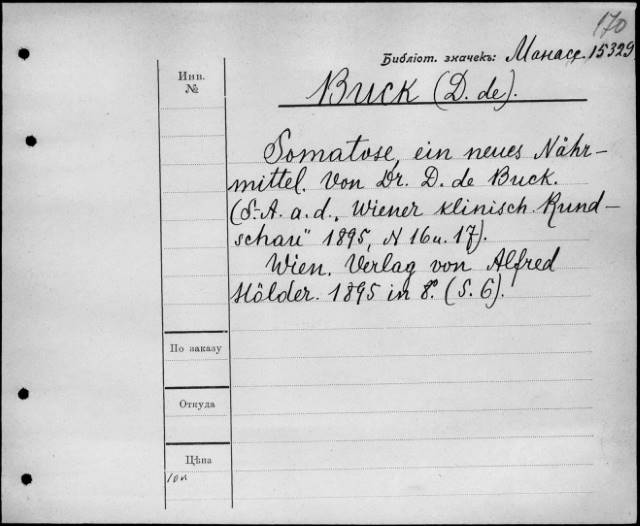 170
Библіот. значекъ: Манасе. 15329.
Инв.
№
Buck (D. de).
Somatose, ein neues Nähr-
mittel. Von Dr. D. de Buck.
(S.-A. a. d. „Wiener klinisch. Rund-
schau" 1895, N 16 u. 17).
Wien. Verlag von Alfred
Hölder. 1895 in 8°. (S. 6).
По заказу
Откуда
Цѣна